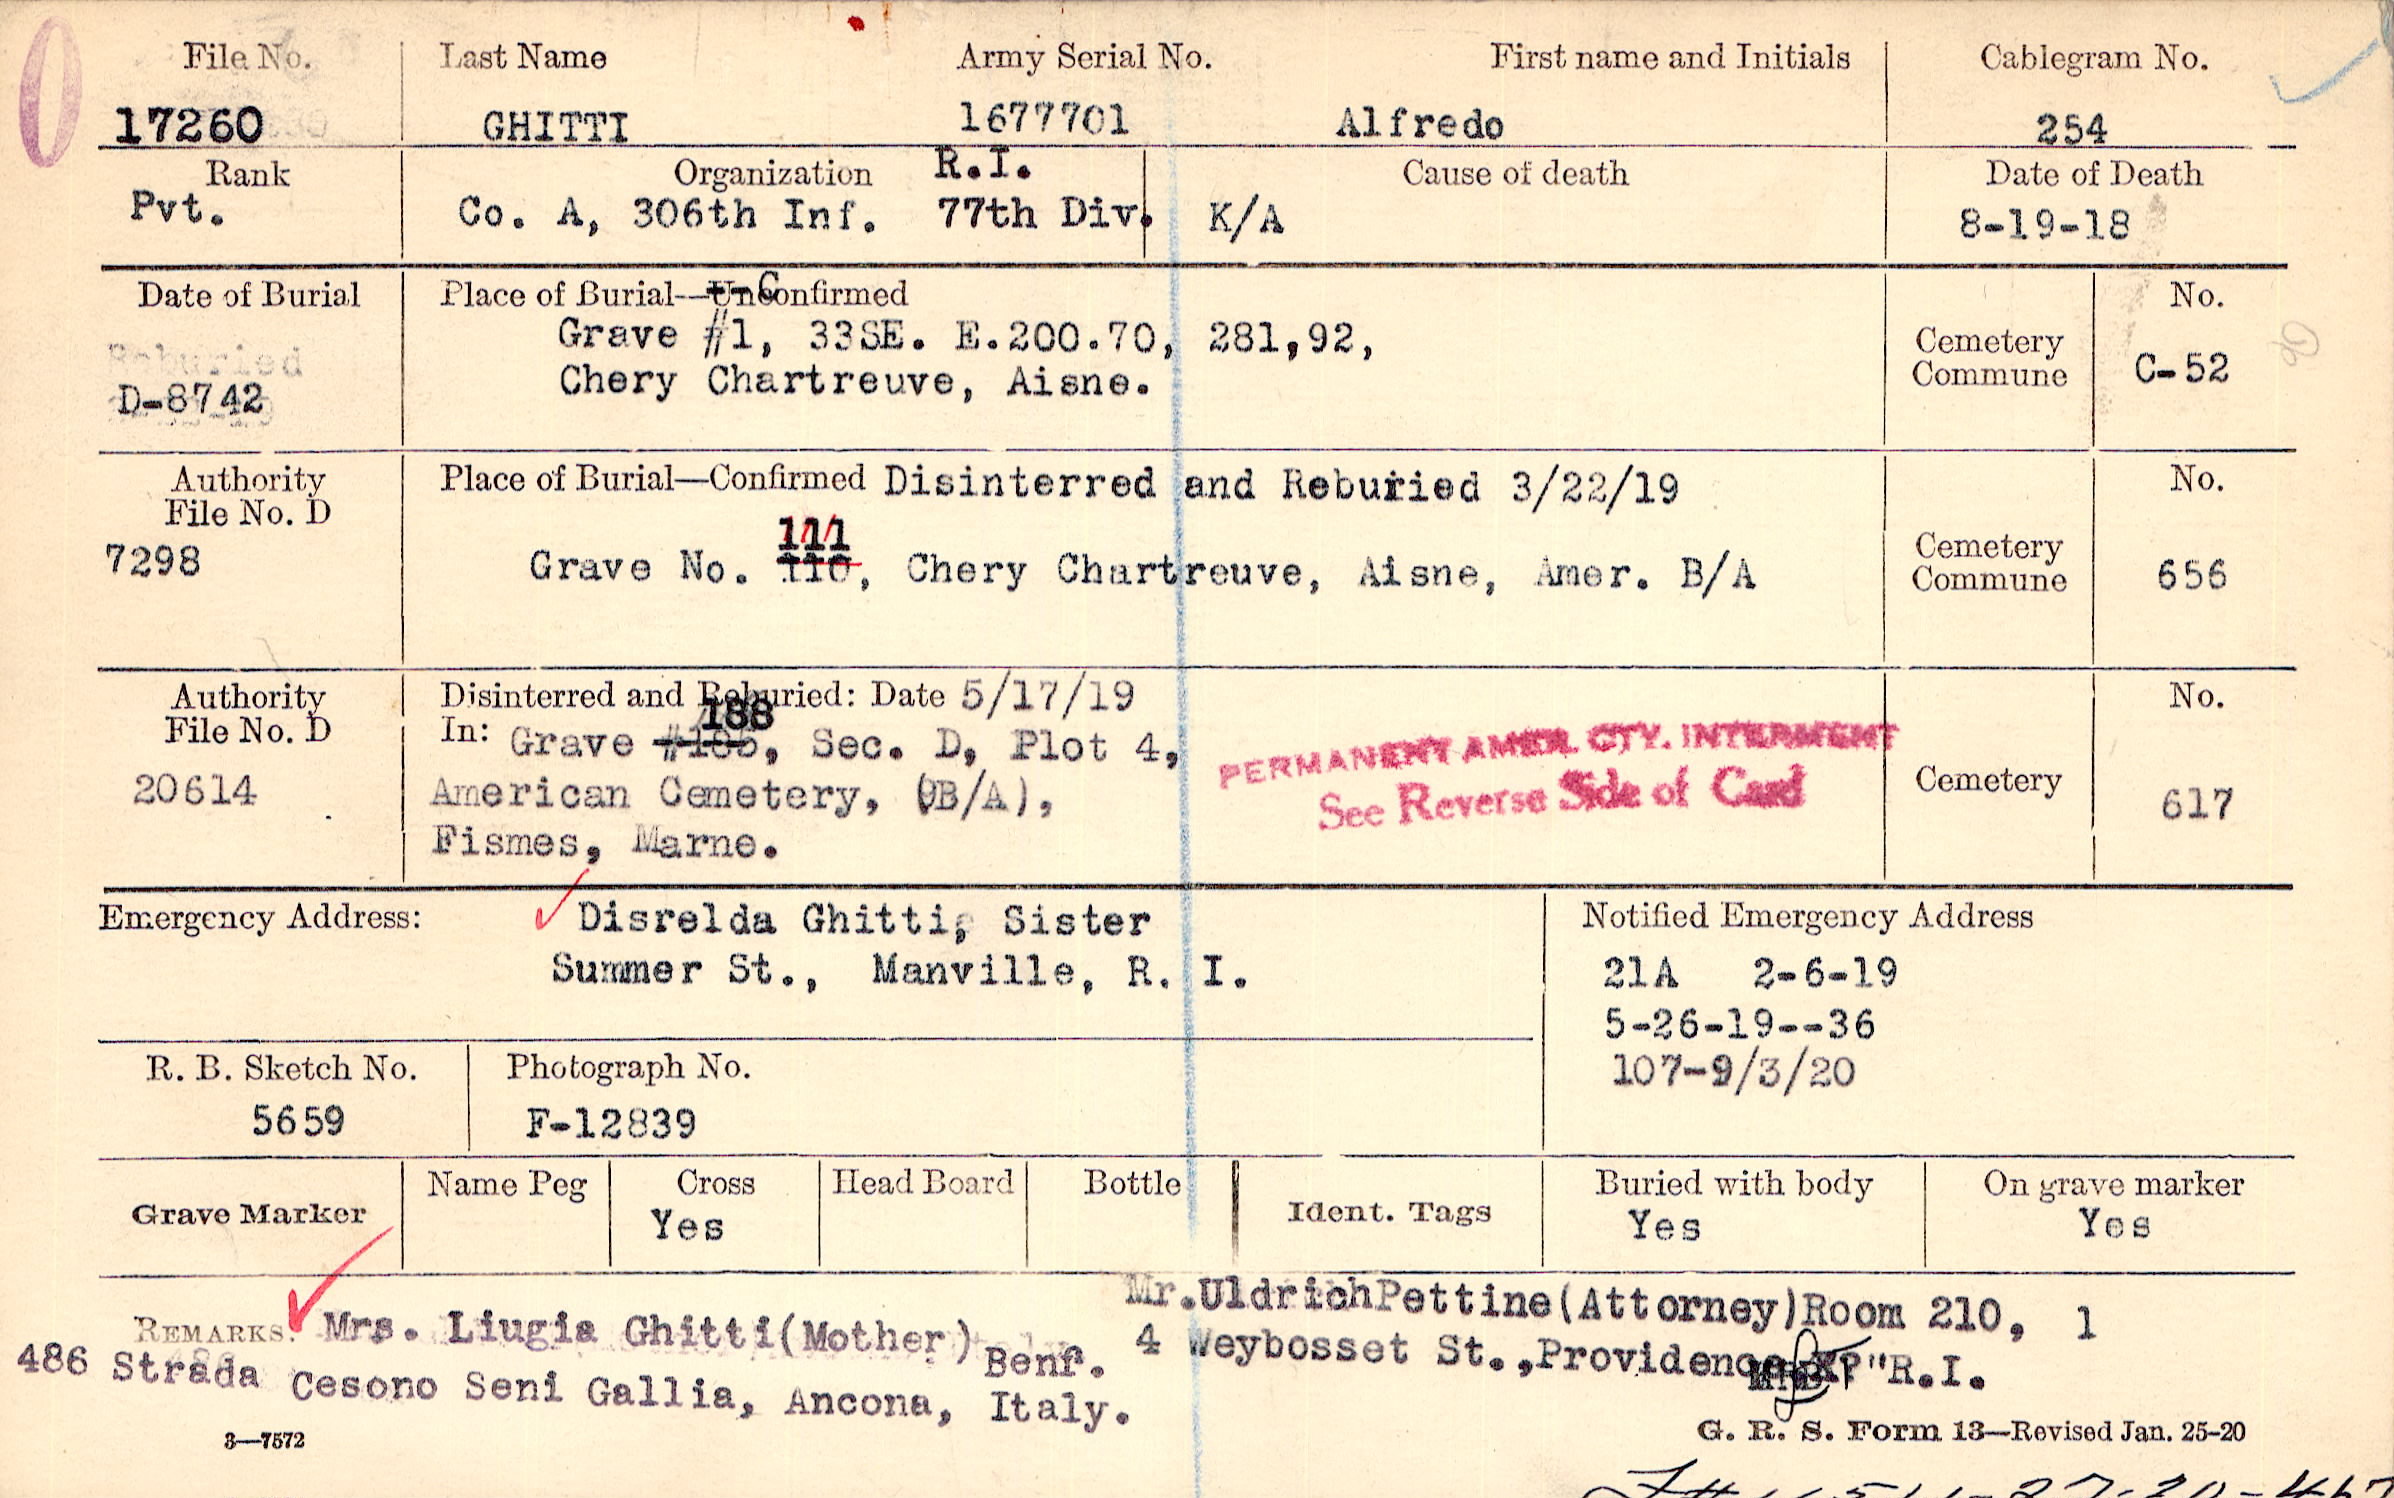 File No. Last Name Army Serial No. First name and Initials Cablegram No.
17260 GHITTI 1677701 Alfredo 254
Rank Organization R.I. Cause of death Date of Death
Pvt. Co. A, 306th Inf. 77th Div. K/A 8-19-18
Date of Burial Place of Burial—Unconfirmed C No.
Reburied Grave #1, 33SE. E.200.70, 281,92, Cemetery
D-8742 Chery Chartreuve, Aisne. Commune C-52
Authority Place of Burial—Confirmed Disinterred and Reburied 3/22/19 No.
File No. D
111
7298 Grave No. 110, Chery Chartreuve, Aisne, Amer. B/A Cemetery Commune 656
Authority Disinterred and Reburied: Date 5/17/19 No.
188
File No. D In: Grave , Sec. D, Plot 4, PERMANENT AMER. CTY. INTERMENT
20614 American Cemetery, (B/A), See Reverse Side of Card Cemetery 617
Fismes, Marne.
Emergency Address: Disrelda Ghitti, Sister Notified Emergency Address
Summer St., Manville, R. I. 21A 2-6-19
5-26-19--36
R. B. Sketch No. Photograph No. 107-9/3/20
5659 F-12839
Grave Marker Name Peg Cross Head Board Bottle Ident. Tags Buried with body On grave marker
Yes Yes Yes
REMARKS: Mrs. Liugia Ghitti(Mother) Benf. Mr.UldrichPettine(Attorney)Room 210, 1
486 Strada Cesono Seni Gallia, Ancona, Italy. 4 Weybosset St.,Providence "R.I.
3—7572 G. R. S. Form 13—Revised Jan. 25-20